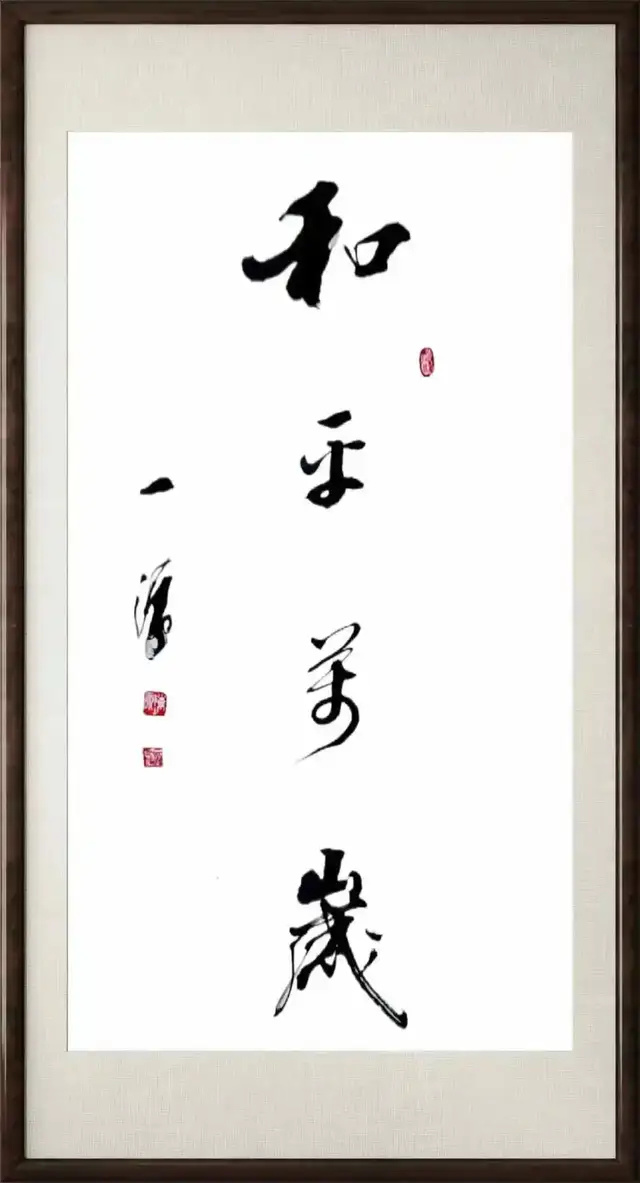 和平萬歲
一